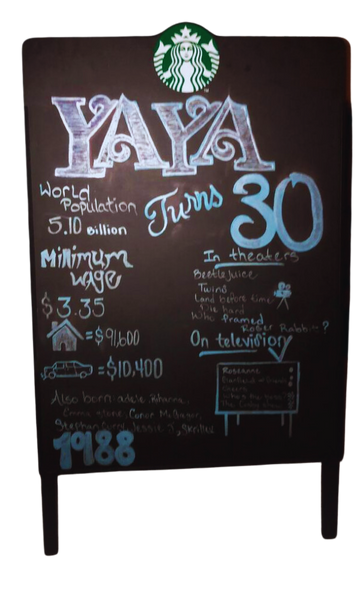 YAYA
Turns 30
World
Population
5.10 Billion
Minimum
wage
$3.35
= $91,600
= $10,400
In theaters
Beetlejuice
Twins
Land before time
Die hard
Who framed
Roger Rabbit?
On television
Roseanne
Cheers
Also born: adele, Rihanna,
Emma stone, Conor McGregor,
Stephen Curry, Jessie J, Skrillex
1988